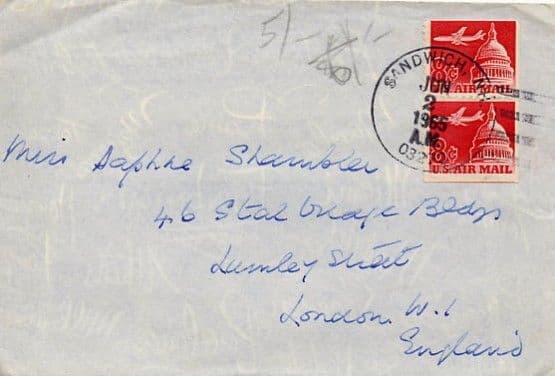 5/-
SANDWICH, N.H.
JUN
2
1965
A.M.
U.S. AIR MAIL
U.S. AIR MAIL
Miss Daphne
46 Stalbridge Bldgs
Lumley Street
London. W.1
England